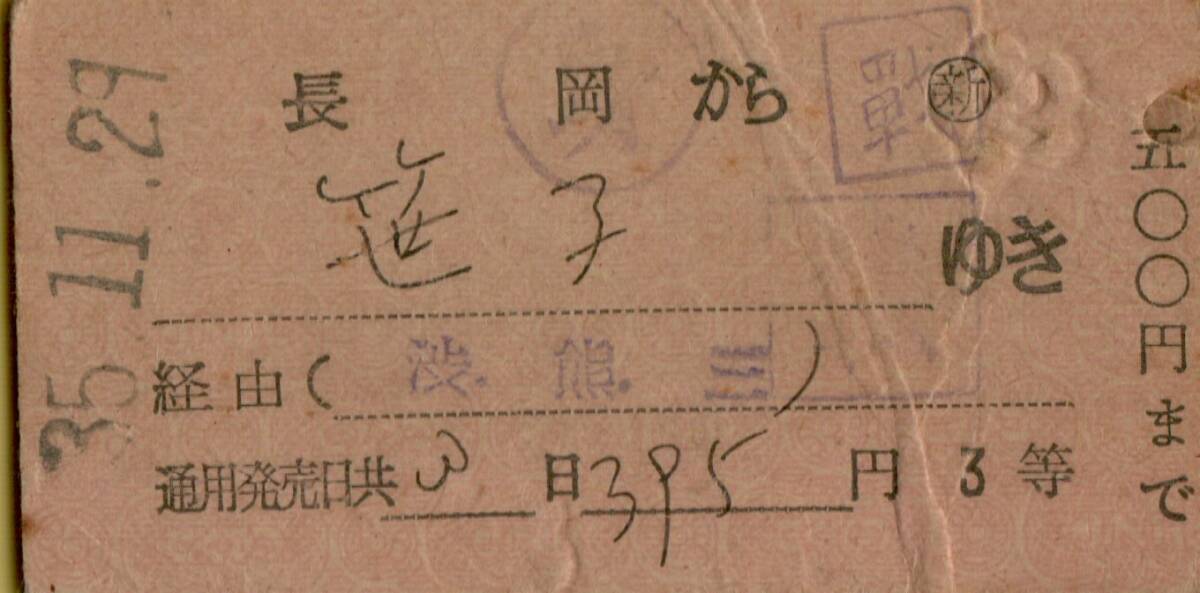 長岡から ㊟新
笹子 ゆき
経由(渋.熊.三)
通用発売日共3日395円 3等
五〇〇円まで
35.11.29
戦